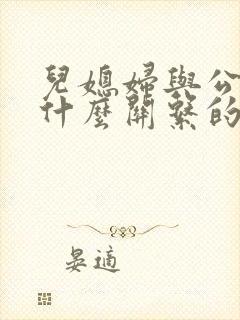 兒媳婦與公
什麼關繫的
晏適